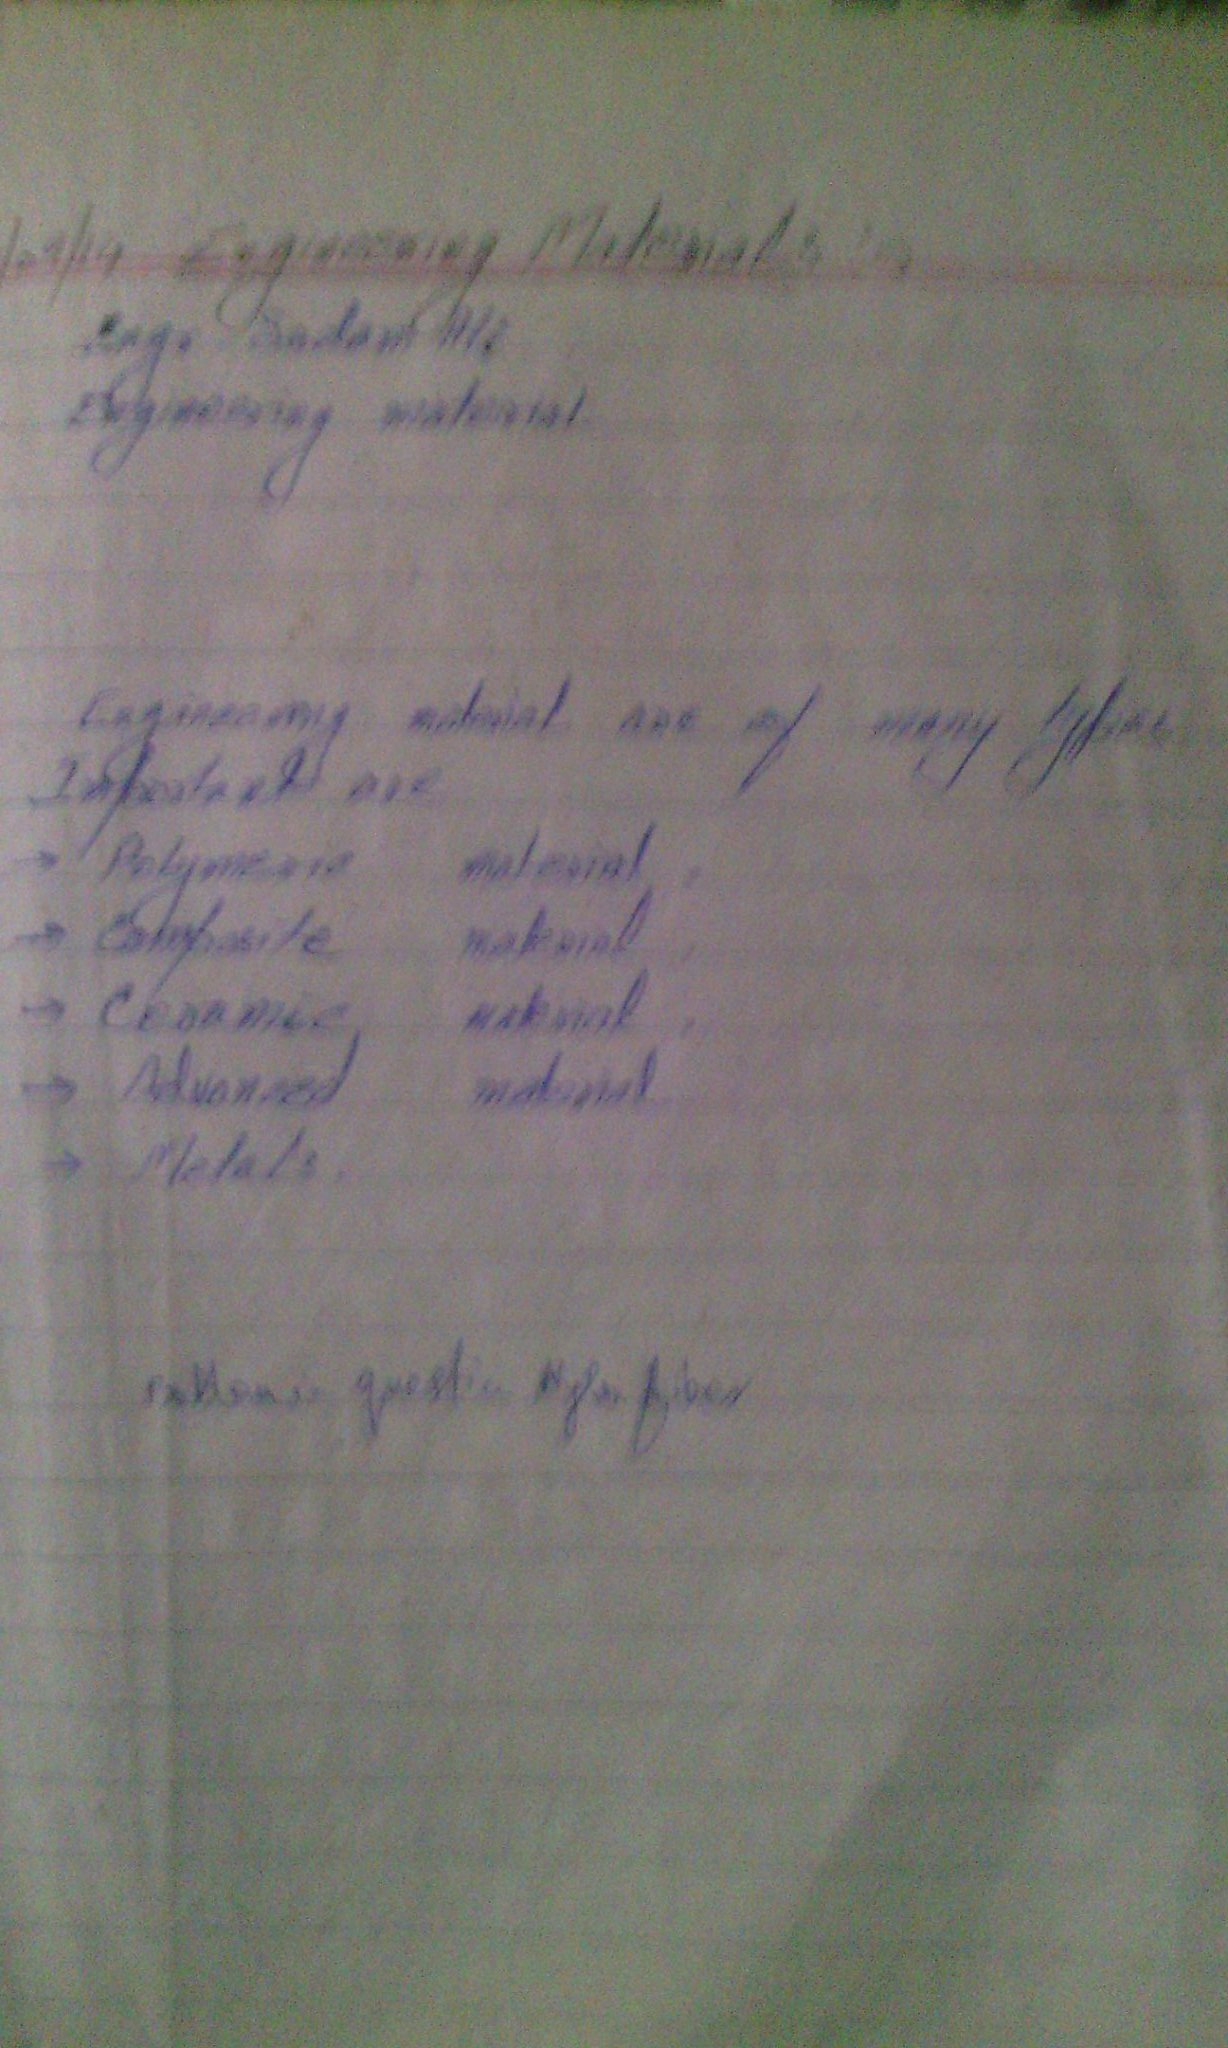 Engineering Materials
Engr Sadam Ali
Engineering material
Engineering material are of many types
Important are
→ Polymeric material,
→ Composite material,
→ Ceramic material,
→ Advanced material
→ Metals.
question Nylon fiber